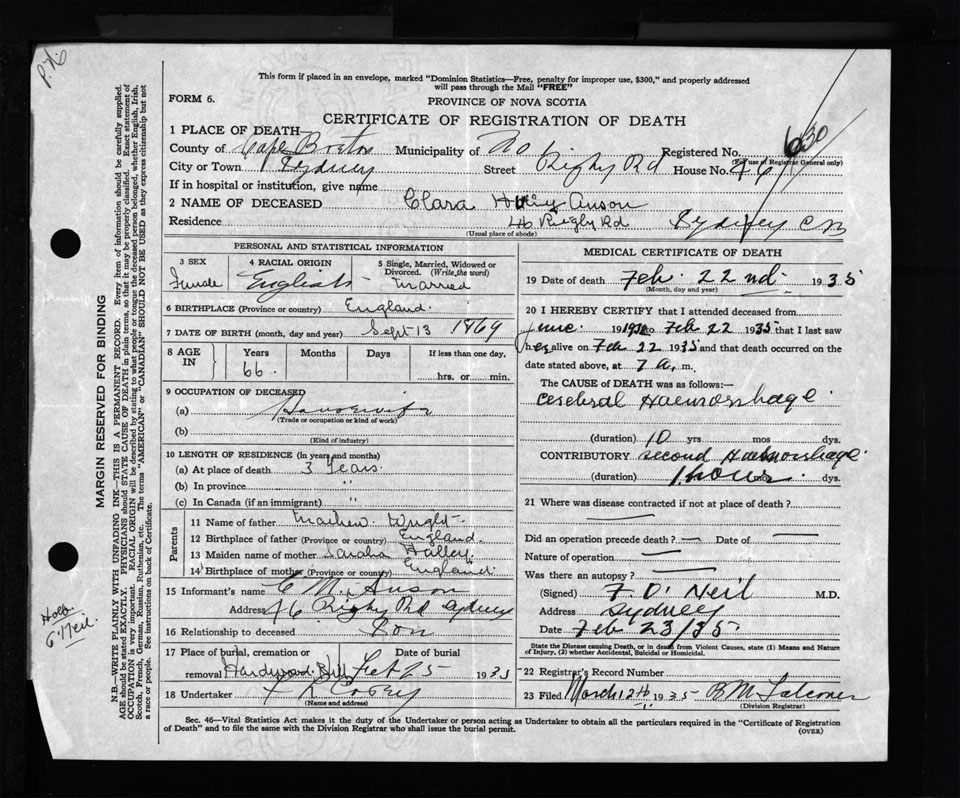 This form if placed in an envelope, marked "Dominion Statistics—Free, penalty for improper use, $300," and properly addressed
will pass through the Mail "FREE"
FORM 6.
PROVINCE OF NOVA SCOTIA
CERTIFICATE OF REGISTRATION OF DEATH
630
1 PLACE OF DEATH—
County of Cape Breton Municipality of No Registered No.
(For use of Registrar General only)
City or Town Sydney Street Rigby Rd House No. 46
If in hospital or institution, give name
2 NAME OF DECEASED Clara Anson
Residence 46 Rigby Rd Sydney C B
(Usual place of abode)
PERSONAL AND STATISTICAL INFORMATION
3 SEX 4 RACIAL ORIGIN 5 Single, Married, Widowed or
Divorced. (Write the word)
Female English Married
6 BIRTHPLACE (Province or country) England.
7 DATE OF BIRTH (month, day and year) Sept 13 1869
8 AGE IN Years Months Days If less than one day,
66. hrs. or min.
9 OCCUPATION OF DECEASED
(a) Housewife
(Trade or occupation or kind of work)
(b)
(Kind of industry)
10 LENGTH OF RESIDENCE (in years and months)
(a) At place of death 3 Years.
(b) In province "
(c) In Canada (if an immigrant) "
Parents
11 Name of father Mathew Wright
12 Birthplace of father (Province or country) England
13 Maiden name of mother Sarah Halley
14 Birthplace of mother (Province or country) England
15 Informant's name C M Anson
Address 46 Rigby Rd Sydney
16 Relationship to deceased Son
17 Place of burial, cremation or Date of burial
removal Hardwood Hill Feb 25 1935
18 Undertaker F K
(Name and address)
MEDICAL CERTIFICATE OF DEATH
19 Date of death Feb. 22nd 1935
(Month, day and year)
20 I HEREBY CERTIFY that I attended deceased from
June 19 to Feb 22 1935 that I last saw
her alive on Feb 22 1935 and that death occurred on the
date stated above, at 7 a, m.
The CAUSE of DEATH was as follows:—
Cerebral Haemorrhage
(duration) 10 yrs mos dys.
CONTRIBUTORY second Haemorrhage
(duration) 1 hour mos. dys.
21 Where was disease contracted if not at place of death?
Did an operation precede death? — Date of —
Nature of operation —
Was there an autopsy? —
(Signed) F O' Neil M.D.
Address Sydney
Date Feb 23/35
State the Disease causing Death, or in death from Violent Causes, state (1) Means and Nature
of Injury, (2) whether Accidental, Suicidal or Homicidal.
22 Registrar's Record Number
23 Filed March 12th 1935 B M Falconer
(Division Registrar)
Sec. 46—Vital Statistics Act makes it the duty of the Undertaker or person acting as Undertaker to obtain all the particulars required in the "Certificate of Registration
of Death" and to file the same with the Division Registrar who shall issue the burial permit.
(OVER)
MARGIN RESERVED FOR BINDING
N.B.—WRITE PLAINLY WITH UNFADING INK—THIS IS A PERMANENT RECORD. Every item of information should be carefully supplied.
AGE should be stated EXACTLY. PHYSICIANS should STATE CAUSE OF DEATH in plain terms, so that it may be properly classified. Exact statement of
OCCUPATION is very important. RACIAL ORIGIN will be described by stating to what people or tongue the deceased person belonged, whether English, Irish,
Scotch, French, German, Russian, Ruthenian, etc. The terms "AMERICAN" or "CANADIAN" SHOULD NOT BE USED as they express citizenship but not
a race or people. See instructions on back of Certificate.
O'Neil.